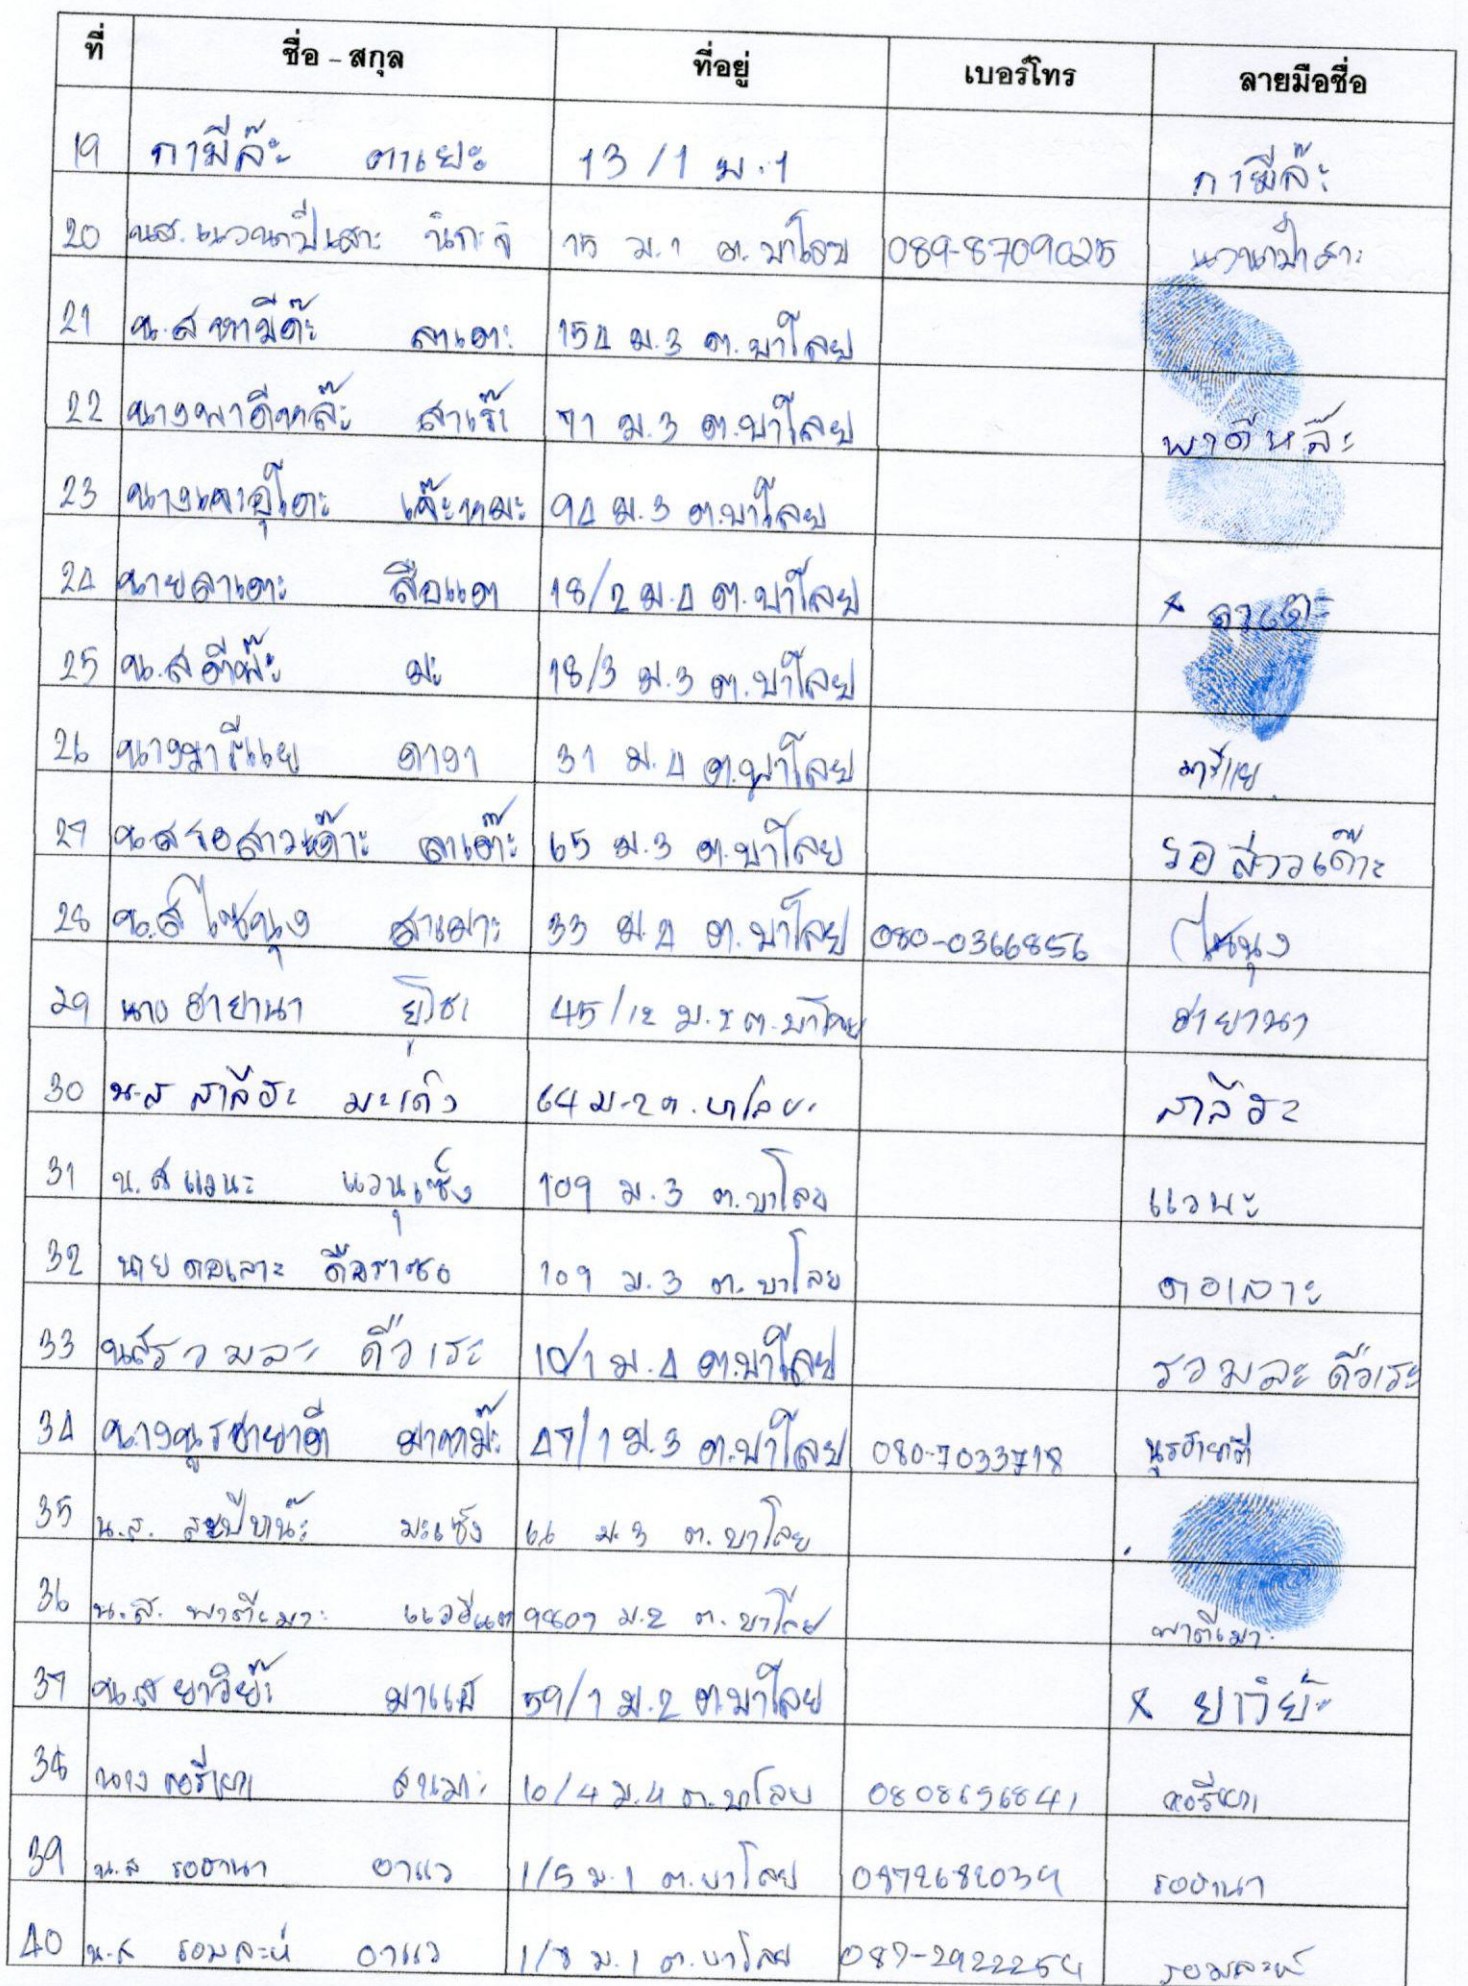 ที่ ชื่อ - สกุล ที่อยู่ เบอร์โทร ลายมือชื่อ
19 กามีล๊ะ ตาเยะ 13/1 ม.1 กามีล๊ะ
20 นส. นิกะจิ 15 ม.1 ต.บาโลย 089-8709025
21 น.ส หามีด๊ะ ลาเตะ 154 ม.3 ต.บาโลย
22 นางพาตีหล๊ะ สาเร๊ะ 71 ม.3 ต.บาโลย พาตีหล๊ะ
23 94 ม.3 ต.บาโลย
24 นายลาเตะ สือแต 18/2 ม.4 ต.บาโลย x ลาเต๊ะ
25 น.ส ตีพ๊ะ มะ 18/3 ม.3 ต.บาโลย
26 นางมารีแย ดางา 31 ม.4 ต.บาโลย มารีแย
27 น.ส รอสาวเด๊าะ ลาเต๊าะ 65 ม.3 ต.บาโลย รอสาวเด๊าะ
28 น.ส ไซนุง สาเมาะ 33 ม.4 ต.บาโลย 080-0366856 ไซนุง
29 นาง ฮายานา ยูโซะ 45/12 ม.2 ต.บาโลย ฮายานา
30 น.ส สาลีฮะ มะเด็ง 64 ม.2 ต.บาโลย สาลีฮะ
31 น.ส แวนะ แวนุเซ็ง 109 ม.3 ต.บาโลย แวนะ
32 นาย ดอเลาะ ดือราซอ 109 ม.3 ต.บาโลย ดอเลาะ
33 นส รอมละ ดือเระ 10/1 ม.4 ต.บาโลย รอมละ ดือเระ
34 นางนูรฮายาตี มาหาม๊ะ 47/1 ม.3 ต.บาโลย 080-7033718 นูรฮายาตี
35 น.ส. สะปีน๊ะ มะเซ็ง 66 ม.3 ต.บาโลย
36 น.ส. พาตีเมาะ ม.2 ต.บาโลย พาตีเมาะ
37 น.ส ยาวิย๊ะ มาแซ 59/1 ม.2 ต.บาโลย x ยาวิย๊ะ
38 นาง สาเมาะ 10/4 ม.4 ต.บาโลย 0808656841
39 น.ส รอฮานา อาแว 1/5 ม.1 ต.บาโลย 0872682034 รอฮานา
40 น.ส รอมละห์ อาแว 1/8 ม.1 ต.บาโลย 087-2922254 รอมละห์